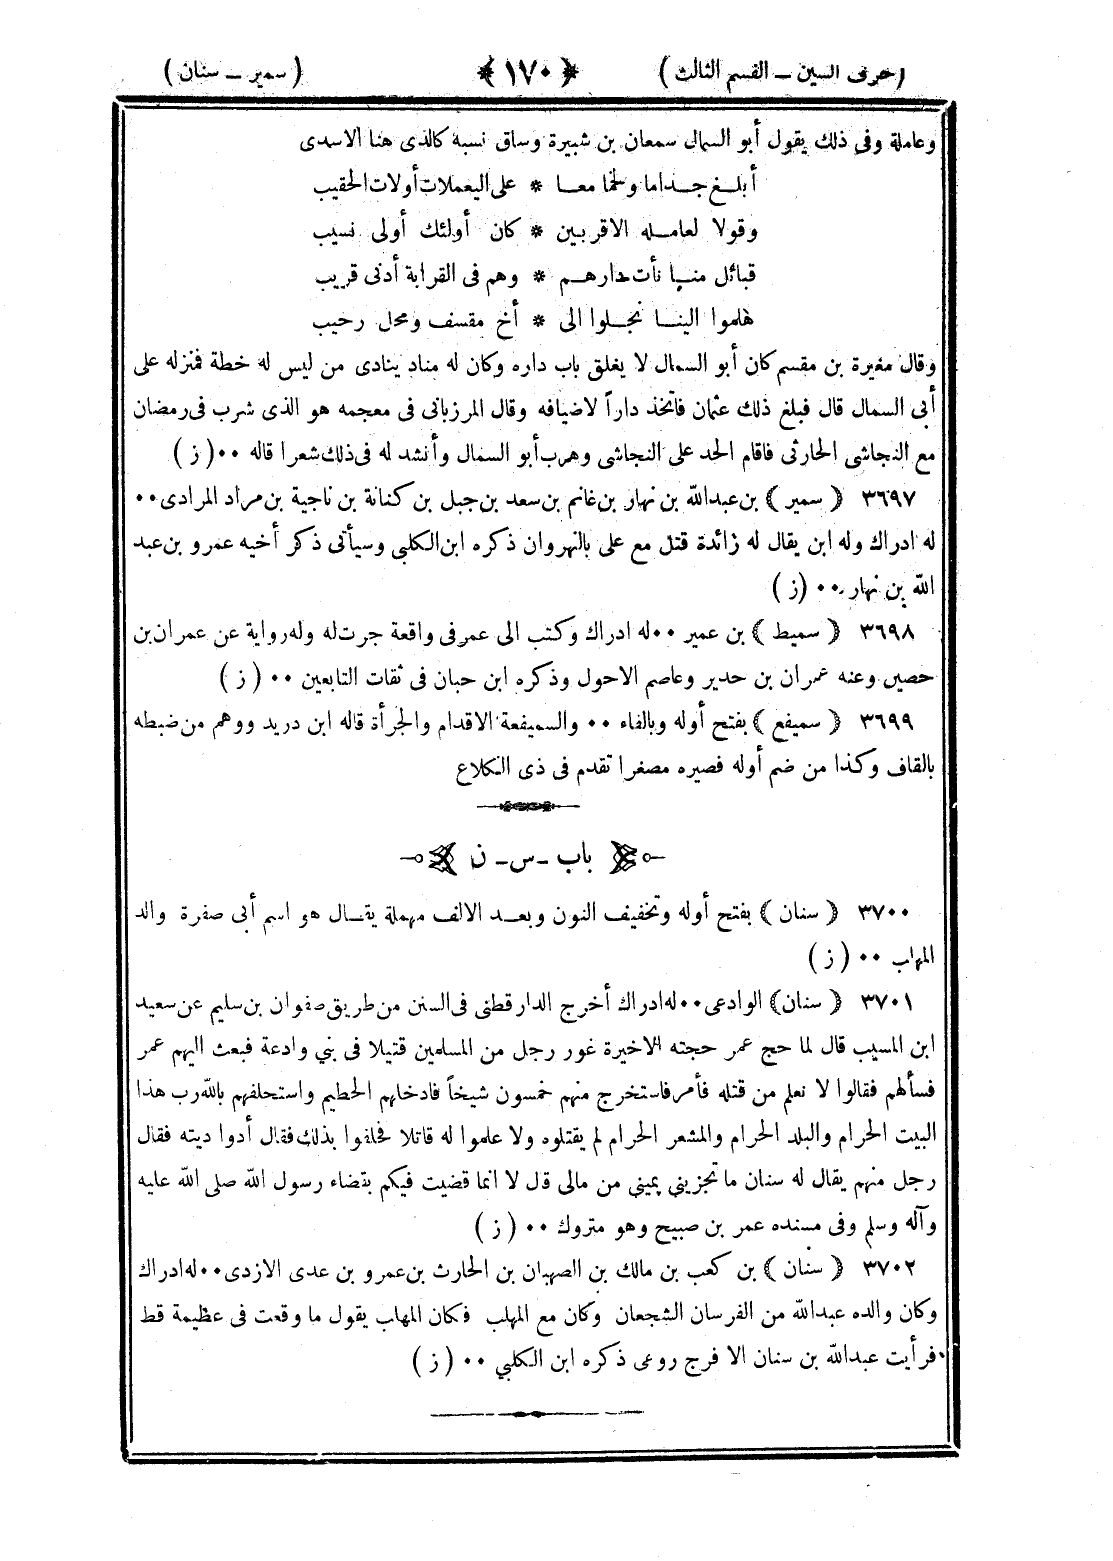 (حرف السين - القسم الثالث) ﴿١٧٠﴾ (سمير - سنان)
وعاملة وفى ذلك يقول أبو السمال سمعان بن شبيرة وساق نسبه كالذى هنا الاسدى
أبلغ جذاما ولخما معا * على اليعملات أولات الحقيب
وقولا لعامله الاقربين * كان أولئك أولى نسيب
قبائل منا نأت دارهم * وهم فى القرابة أدنى قريب
هلموا الينا نجلوا الى * أخ مقسف ومحل رحيب
وقال مغيرة بن مقسم كان أبو السمال لا يغلق باب داره وكان له مناد ينادى من ليس له خطة فمنزله على
أبى السمال قال فبلغ ذلك عثمان فاتخذ داراً لاضيافه وقال المرزبانى فى معجمه هو الذى شرب فى رمضان
مع النجاشى الحارثى فاقام الحد على النجاشى وهرب أبو السمال وأنشد له فى ذلك شعرا قاله ٠٠ (ز)
٣٦٩٧ ﴿سمير﴾ بن عبدالله بن نهار بن غانم بن سعد بن جبل بن كنانة بن ناجية بن مراد المرادى ٠٠
له ادراك وله ابن يقال له زائدة قتل مع على بالنهروان ذكره ابن الكلبي وسيأتى ذكر أخيه عمرو بن عبد
الله بن نهار ٠٠ (ز)
٣٦٩٨ ﴿سميط﴾ بن عمير ٠٠ له ادراك وكتب الى عمر فى واقعة جرت له وله رواية عن عمران بن
حصين وعنه عمران بن حدير وعاصم الاحول وذكره ابن حبان فى ثقات التابعين ٠٠ (ز)
٣٦٩٩ ﴿سميفع﴾ بفتح أوله وبالفاء ٠٠ والسميفعة الاقدام والجرأة قاله ابن دريد ووهم من ضبطه
بالقاف وكذا من ضم أوله فصيره مصغرا تقدم فى ذى الكلاع
باب -س- ن
٣٧٠٠ ﴿سنان﴾ بفتح أوله وتخفيف النون وبعد الالف مهملة يقال هو اسم أبى صفرة والد
المهلب ٠٠ (ز)
٣٧٠١ ﴿سنان﴾ الوادعى ٠٠ له ادراك أخرج الدارقطنى فى السنن من طريق صفوان بن سليم عن سعيد
ابن المسيب قال لما حج عمر حجته الاخيرة غور رجل من المسلمين قتيلا فى بني وادعة فبعث اليهم عمر
فسألهم فقالوا لا نعلم من قتله فأمر فاستخرج منهم خمسون شيخاً فادخلهم الحطيم واستحلفهم بالله رب هذا
البيت الحرام والبلد الحرام والمشعر الحرام لم يقتلوه ولا علموا له قاتلا فحلفوا بذلك فقال أدوا ديته فقال
رجل منهم يقال له سنان ما تجزيني يميني من مالى قل لا انما قضيت فيكم بقضاء رسول الله صلى الله عليه
وآله وسلم وفى مسنده عمر بن صبيح وهو متروك ٠٠ (ز)
٣٧٠٢ ﴿سنان﴾ بن كعب بن مالك بن الصهبان بن الحارث بن عمرو بن عدى الازدى ٠٠ له ادراك
وكان والده عبدالله من الفرسان الشجعان وكان مع المهلب فكان المهلب يقول ما وقعت فى عظيمة قط
فرأيت عبدالله بن سنان الا فرج روعى ذكره ابن الكلبي ٠٠ (ز)